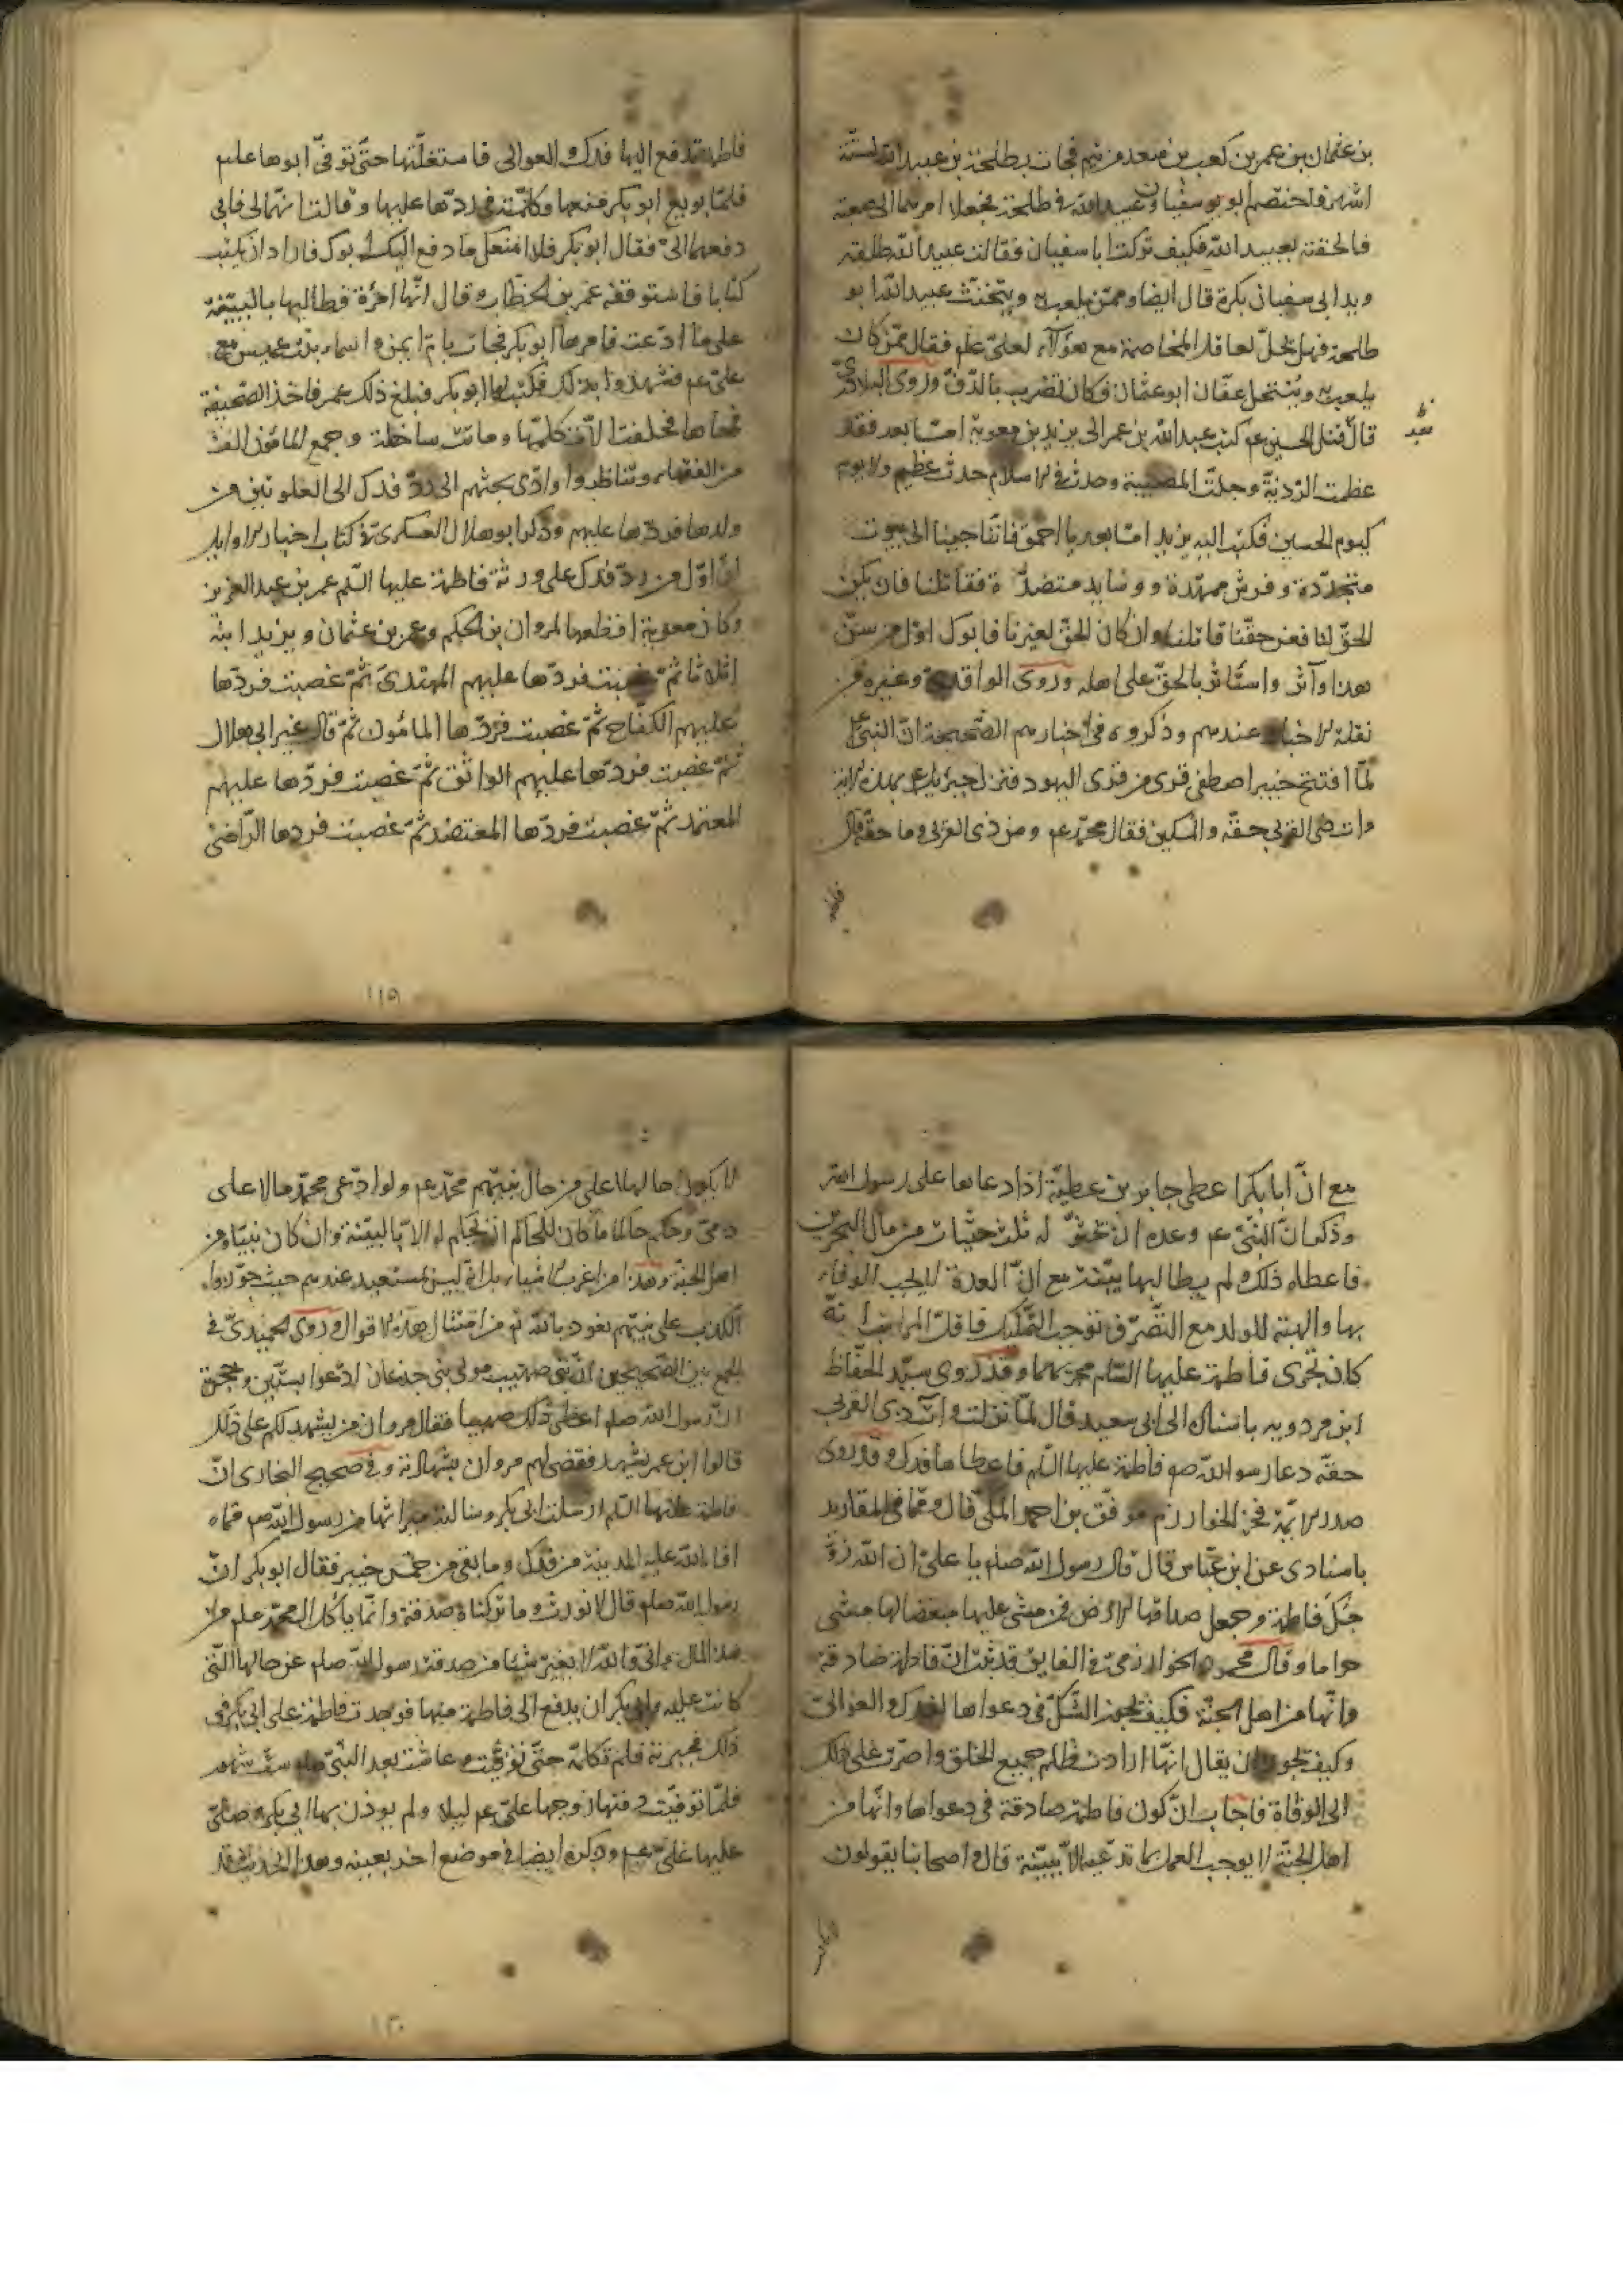 بن عثمان بن عمر بن كعب بن سعد بن تيم فجات بطلحة بن عبيد الله لستة
اشهر فاختصم ابو سفيان وعبيد الله في طلحة فجعلا امرهما الى صعبة
فالحقته بعبيد الله فكيف تركت ابا سفيان فقالت يد عبيد الله طلقة
ويد ابي سفيان بكرة قال ايضا وممن يلعب به ويتخنث عبيد الله ابو
طلحة فهل يحل لعاقل المخاصمة مع هؤلآء لعلي علم فقال ممن كان
يلعب به وينتحل عفان ابو عثمان وكان يضرب بالدف وروى البلاذري
قال قتل الحسين عم كتب عبد الله بن عمر الى يزيد بن معوية امّا بعد فقد
عظمت الرزية وجلت المصيبة وحدث في الاسلام حدث عظيم ولا يوم
كيوم الحسين فكتب اليه يزيد امّا بعد يا احمق فاننا جينا الى بيوت
متجددة وفرش ممهدة ووسايد متضدة فقاتلنا فان يكن
الحق لنا فعن حقنا قاتلنا وان كان الحق لغيرنا فابوك اول من سن
هذا وآثر واستاثر بالحق على اهله وروى الواقدي وغيره من
نقلة الاخبار عندهم وذكروه في اخبارهم الصحيحة ان النبي عم
لمّا افتتح خيبر اصطفى قرى من قرى اليهود فنزل جبرئيل عم بهذه الاية
وات ذي القربى حقه والمسكين فقال محمد عم ومن ذي القربى وما حقه قال
فاطمة تدفع اليها فدك والعوالي فاستغلتها حتى توفي ابوها علم
فلمّا بويع ابو بكر فمنعها وكلمته في ردها عليها وقالت انهما لي فابي
دفعهما الي فقال ابو بكر فلا امنعك ما دفع اليك ابوك فاراد ان يكتب
كتابا فاستوقفه عمر بن الخطاب وقال انها امرءة فطالبها بالبينة
على ما ادعت فامرها ابو بكر فجات بام ايمن واسماء بنت عميس مع
علي عم فشهدوا بذلك فكتب لها ابو بكر فبلغ ذلك عمر فاخذ الصحيفة
فمحاها فحلفت ان لا تكلمها وماتت ساخطة وجمع المامون الف
من الفقهاء وتناظروا وادى بحثهم الى رد فدك الى العلويين من
ولدها فردها عليهم وذكر ابو هلال العسكري في كتاب اخبار الاوايل
ان اول من رد فدك على ورثة فاطمة عليها السلم عمر بن عبد العزيز
وكان معوية اقطعها لمروان بن الحكم وعمر بن عثمان ويزيد ابنه
اثلاثا ثم غصبت فردها عليهم المهتدي ثم غصبت فردها
عليهم السفاح ثم غصبت فردها المامون ثم قال غير ابي هلال
ثم غصبت فردها عليهم الواثق ثم غصبت فردها عليهم
المعتمد ثم غصبت فردها المعتضد ثم غصبت فردها الراضي
١١٥
مع انّ ابا بكر اعطى جابر بن عطية اذا دعا بها على رسول الله
وذكر انّ النبي عم وعده ان يحثو له ثلث حثيات من مال البحرين
فاعطاه ذلك ولم يطالبه ببينة مع انّ العدة لا يجب الوفاء
بها والهبة للولد مع التصرف توجب التمليك فاقل المراتب انه
كان يجري فاطمة عليها السلم مجراهما وقد روى سيد الحفاظ
ابن مردويه باسناده الى ابي سعيد قال لمّا نزلت وات ذي القربى
حقه دعا رسول الله صم فاطمة عليها السلم فاعطاها فدك وقد روى
صدر الائمة فخر خوارزم موفق بن احمد المكي قال وممّا في المقاريد
باسنادي عن ابن عباس قال قال رسول الله صلم يا علي ان الله زو
جك فاطمة وجعل صداقها الارض فمن مشى عليها مبغضا لها مشى
حراما وقال محمود الخوارزمي في الفايق قد ثبت انّ فاطمة صادقة
وانها من اهل الجنة فكيف يجوز الشك في دعواها لفدك والعوالي
وكيف يجوز ان يقال انها ارادت ظلم جميع الخلق واصرت على ذلك
الى الوفاة فاجاب انّ كون فاطمة صادقة في دعواها وانها من
اهل الجنة لا يوجب العمل بما تدعيه الا ببينة قال واصحابنا يقولون
لا يكون حالها اعلى من حال نبيهم محمد عم ولو ادعى محمد مالا على
ذمي وحكم حاكما ما كان للحاكم ان يحكم له الا بالبينة وان كان نبيا ومن
اهل الجنة وهذا من اغرب الاشياء بل انه ليس بمستبعد عندهم حيث جوزوا
الكذب على نبيهم نعوذ بالله من امثال هذه الاقوال وروى الحميدي في
الجمع بين الصحيحين ان بني صهيب مولى بني جدعان ادعوا بيتين وحجرة
انّ رسول الله صلم اعطى ذلك صهيبا فقال مروان من يشهد لكم على ذلك
قالوا ابن عمر يشهد فقضى لهم مروان بشهادته وفي صحيح البخاري انّ
فاطمة عليها السلم ارسلت الى ابي بكر وسالته ميراثها من رسول الله صم ممّا
افاء الله عليه بالمدينة من فدك وما بقي من خمس خيبر فقال ابو بكر انّ
رسول الله صلم قال لا نورث وما تركناه صدقة وانّما ياكل آل محمد علم من
هذا المال واني والله لا يغير شيئا من صدقة رسول الله صلم عن حالها التي
كانت عليه وابى ابو بكر ان يدفع الى فاطمة منها فوجدت فاطمة على ابي بكر في
ذلك فهجرته فلم تكلمه حتى توفيت وعاشت بعد النبي صلم ستة شهور
فلمّا توفيت دفنها زوجها علي عم ليلا ولم يوذن بها ابي بكر وصلّى
عليها علي عم وذكره ايضا في موضع اخر بعينه وهذا الحديث قد